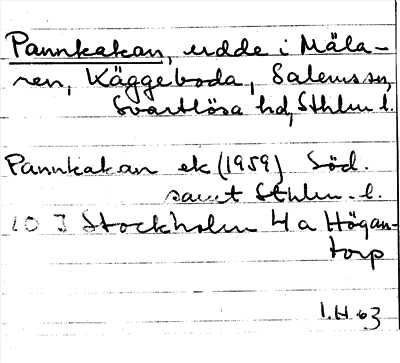 Pannkakan, udde i Mäla-
ren, Käggeboda, Salems sn,
Svartlösa hd, Sthlm l.
Pannkakan ek (1959) Söd.
samt Sthlm. l.
10 I Stockholm 4 a Högan-
torp
I.H 63